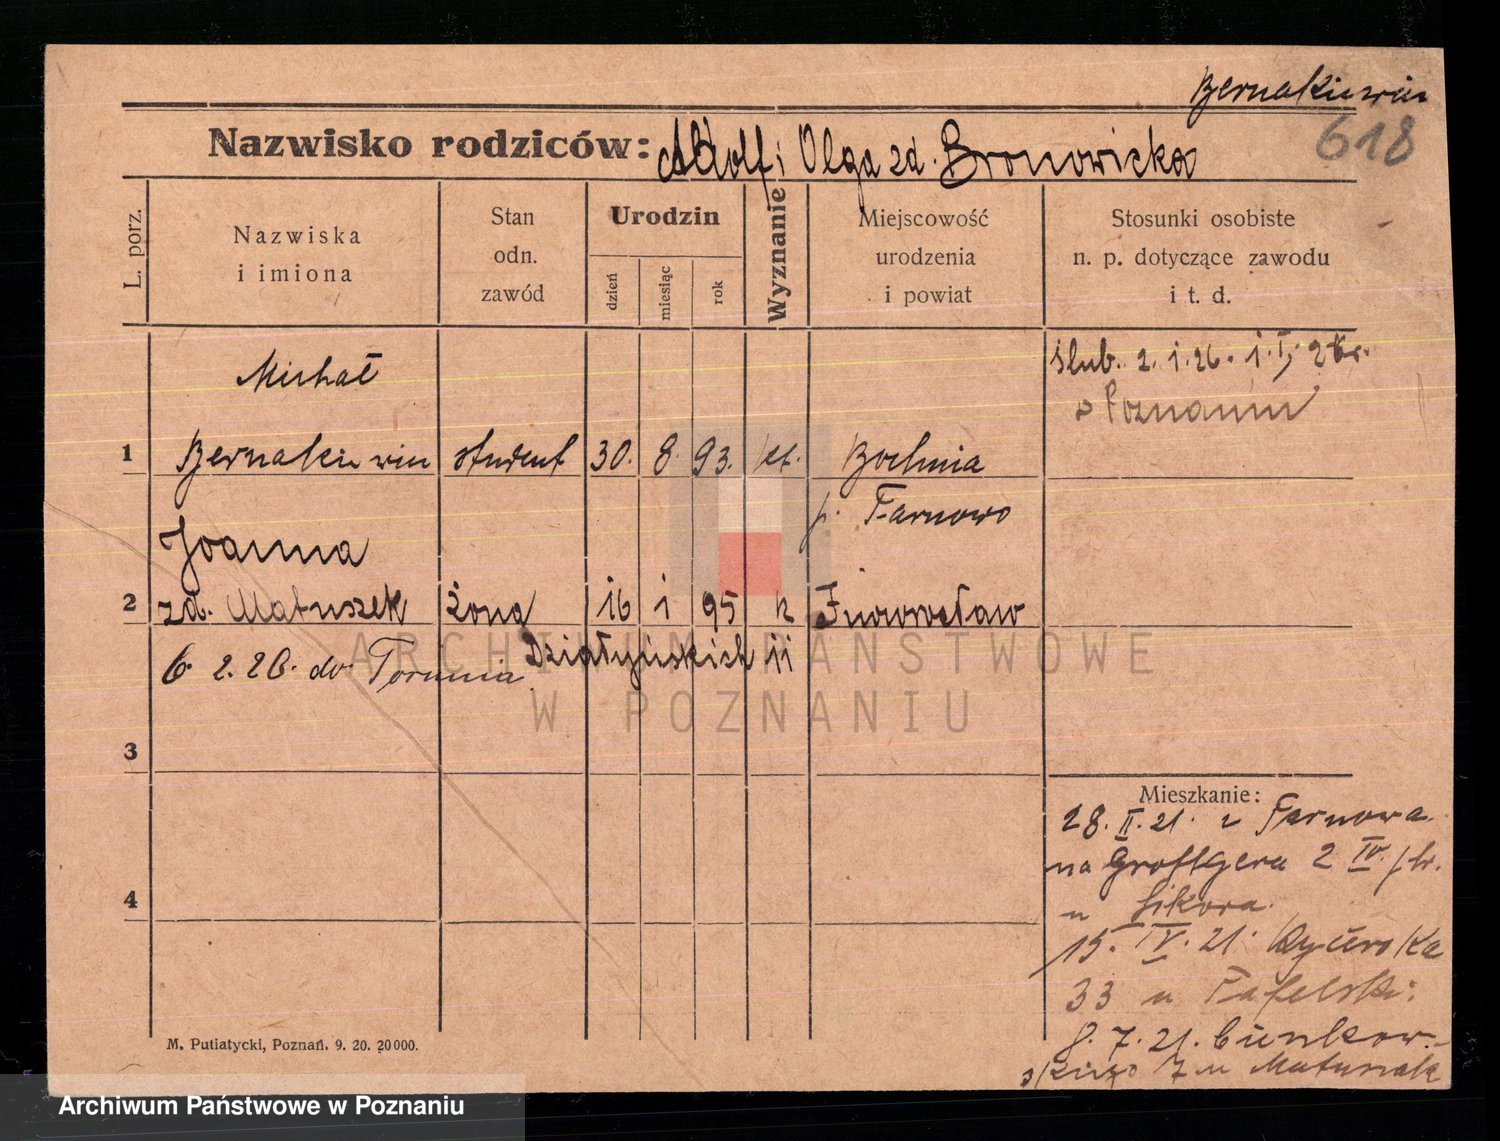 Bernakiewicz
618
Nazwisko rodziców: Adolf i Olga zd. Bronowicka
L. porz.
Nazwiska
i imiona
Stan
odn.
zawód
Urodzin
dzień
miesiąc
rok
Wyznanie
Miejscowość
urodzenia
i powiat
Stosunki osobiste
n. p. dotyczące zawodu
i t. d.
Michał
ślub. 2. 1. 26.
Poznaniu
1 Bernakiewicz student 30. 8. 93. kt. Bochnia
p. Tarnowo
Joanna
2 zd. Matuszek żona 16 1 95 k Inowrocław
6. 2. 26. do Torunia Działyńskich 11
3
Mieszkanie:
28. II. 21. z Tarnowa
na Grottgera 2 IV. ptr.
u Sikora.
4
15. IV. 21. Rycerska
33 u Tafelski.
8. 7. 21. Cienkow-
skiego 7 u Matuszak
M. Putiatycki, Poznań. 9. 20. 20000.
ARCHIWUM PAŃSTWOWE
W POZNANIU
Archiwum Państwowe w Poznaniu